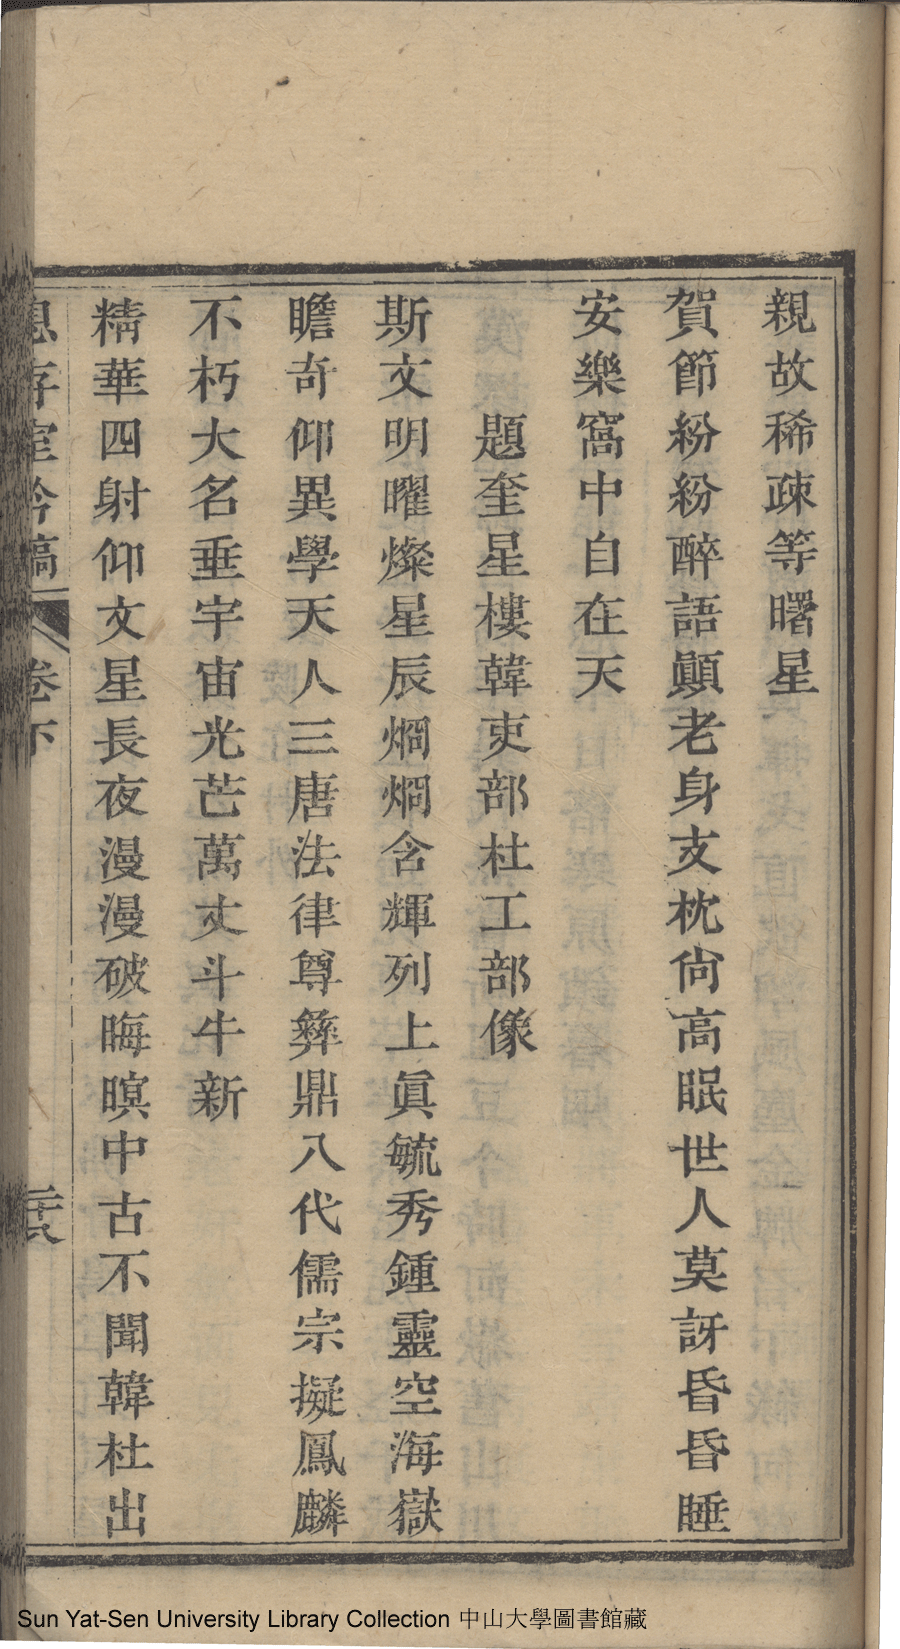 親故稀疎等曙星
賀節紛紛醉語顚老身支枕尙高眠世人莫訝昏昏睡
安樂窩中自在天
題奎星樓韓吏部杜工部像
斯文明曜燦星辰烱烱含輝列上眞毓秀鍾靈空海嶽
瞻奇仰異學天人三唐法律尊彝鼎八代儒宗擬鳳麟
不朽大名垂宇宙光芒萬丈斗牛新
精華四射仰文星長夜漫漫破晦暝中古不聞韓杜出
息存室吟稿 卷下
Sun Yat-Sen University Library Collection 中山大學圖書館藏